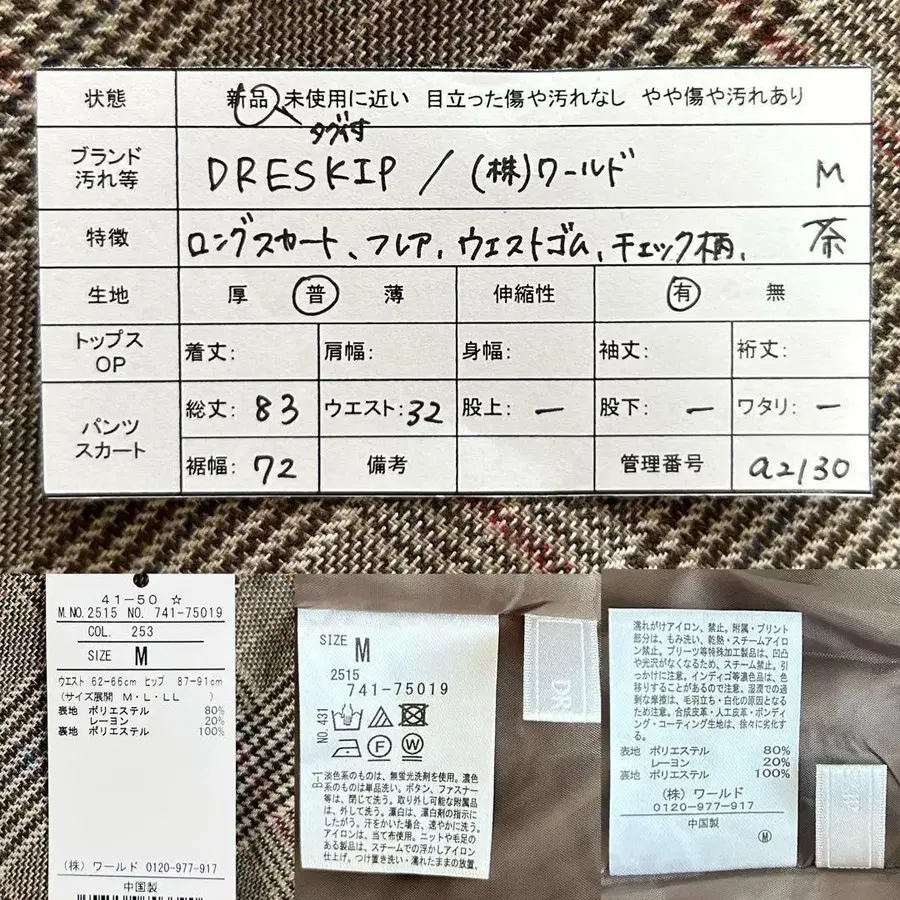 状態 新品 未使用に近い 目立った傷や汚れなし やや傷や汚れあり
タグ付
ブランド 汚れ等 DRESKIP / (株)ワールド M
特徴 ロングスカート、フレア、ウエストゴム、チェック柄、 茶
生地 厚 普 薄 伸縮性 有 無
トップス OP 着丈: 肩幅: 身幅: 袖丈: 裄丈:
パンツ スカート 総丈: 83 ウエスト: 32 股上: ー 股下: ー ワタリ: ー
裾幅: 72 備考 管理番号 a2130
41-50 ☆
M.NO.2515 NO. 741-75019
COL. 253
SIZE M
ウエスト 62-66cm ヒップ 87-91cm
(サイズ展開 M・L・LL )
表地 ポリエステル 80%
レーヨン 20%
裏地 ポリエステル 100%
(株) ワールド 0120-977-917
中国製
SIZE M
2515
741-75019
NO.431
淡色系のものは、無蛍光洗剤を使用。濃色
系のものは単品洗い。ボタン、ファスナー
等は、閉じて洗う。取り外し可能な附属品
は、外して洗う。漂白は、漂白剤の指示に
したがう。汗をかいた場合、速やかに洗う。
アイロンは、当て布使用。ニットや毛足の
ある製品は、スチームでの浮かしアイロン
仕上げ。つけ置き洗い・濡れたままの放置、
DR
濡れがけアイロン、禁止。附属・プリント
部分は、もみ洗い、乾熱・スチームアイロ
ン禁止。プリーツ等特殊加工製品は、凹凸
や光沢がなくなるため、スチーム禁止。引
っかけに注意。インディゴ等濃色品は、色
移りすることがあるので注意。湿潤での過
剰な摩擦は、毛羽立ち・白化の原因となる
ため注意。合成皮革・人工皮革・ボンディ
ング・コーティング生地は、徐々に劣化す
る。
表地 ポリエステル 80%
レーヨン 20%
裏地 ポリエステル 100%
(株) ワールド
0120-977-917
中国製
M